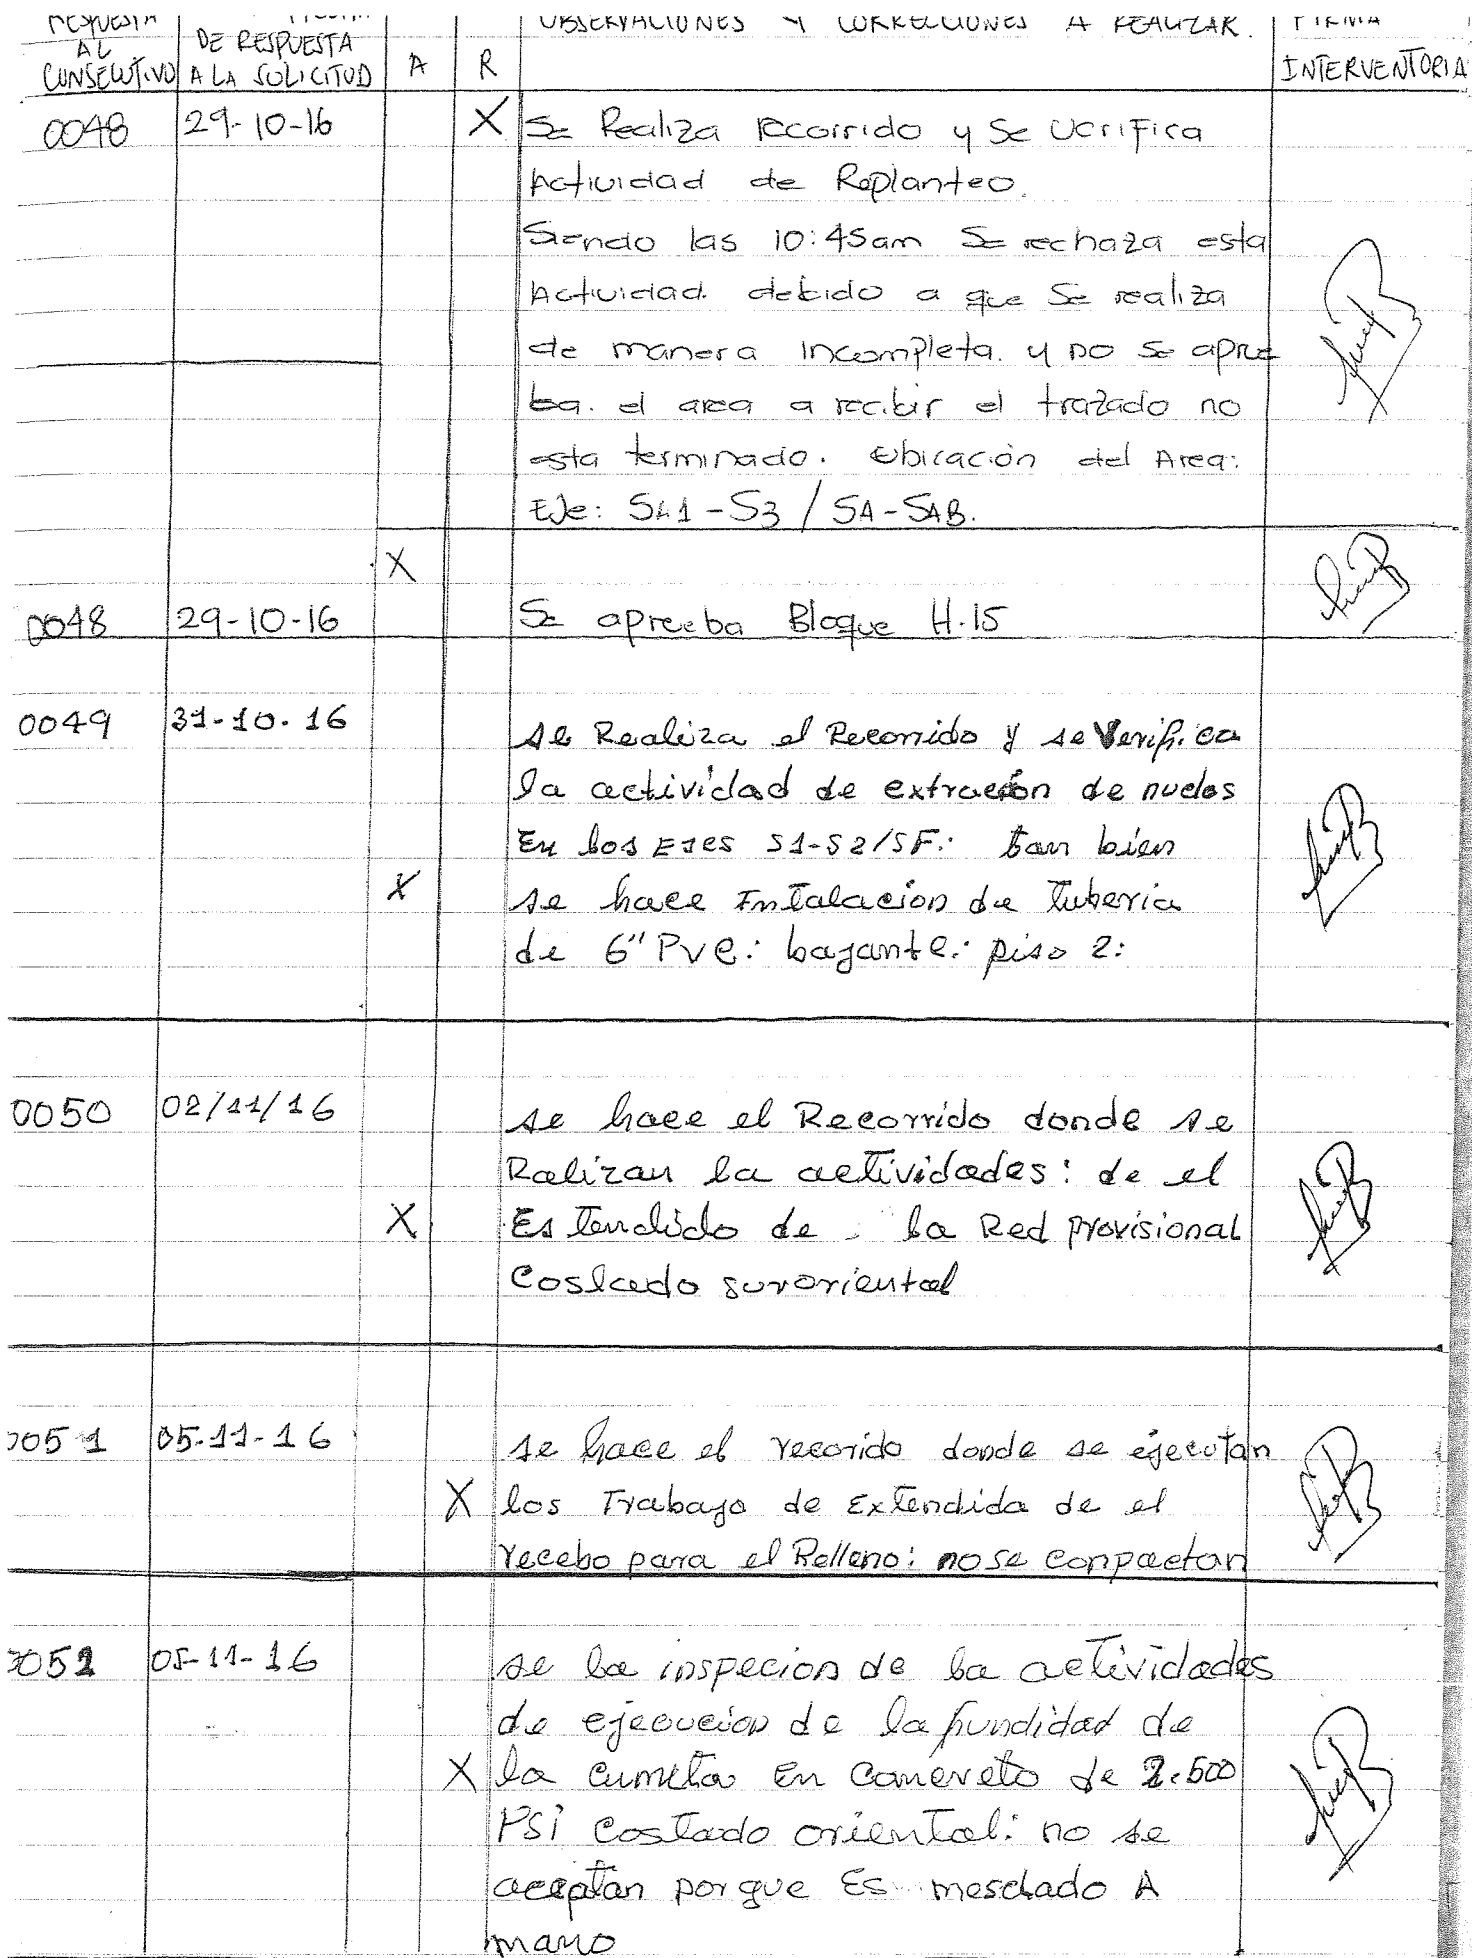 RESPUESTA AL CONSECUTIVO | FECHA DE RESPUESTA A LA SOLICITUD | A | R | OBSERVACIONES Y CORRECCIONES A REALIZAR. | FIRMA INTERVENTORIA
0048 29-10-16 X Se Realiza recorrido y Se verifica
Actividad de Replanteo.
Siendo las 10:45am Se rechaza esta
Actividad. debido a que Se realiza
de manera incompleta. y no se aprue
ba. el area a recibir el trazado no
esta terminado. Ubicación del Area:
EJe: SA1-S3 / SA-SAB.
X
0048 29-10-16 Se aprueba Bloque H.15
0049 31-10-16 se Realiza el Recorrido y se Verifica
la actividad de extracción de nucleos
En los EJes S1-S2/SF: tan bien
X se hace Intalacion de Tuberia
de 6" Pvc: bajante: piso 2:
0050 02/11/16 se hace el Recorrido donde se
Ralizan la actividades: de el
X Es Tendido de la Red provisional
Costado suroriental
0051 05-11-16 se hace el recorido donde se ejecutan
X los Trabajo de Extendida de el
recebo para el Relleno: no se conpactan
0052 05-11-16 se la inspecion de la actividades
de ejecucion de la fundidad de
X la cuneta En concreto de 2.500
PSi costado oriental: no se
aceptan porque Es mesclado A
mano